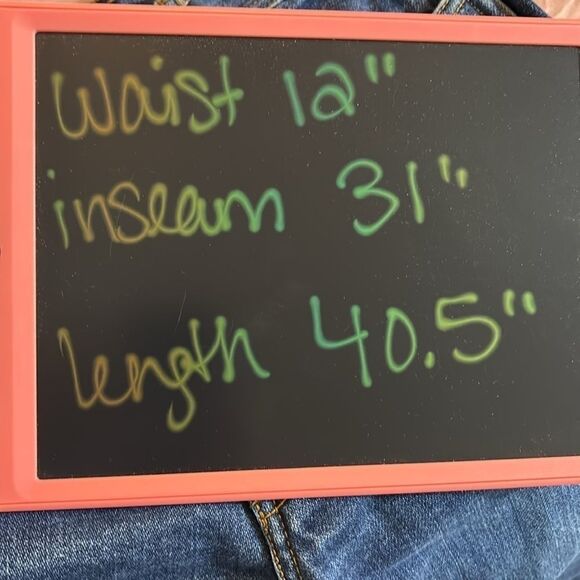 Waist 12"
inseam 31"
length 40.5"